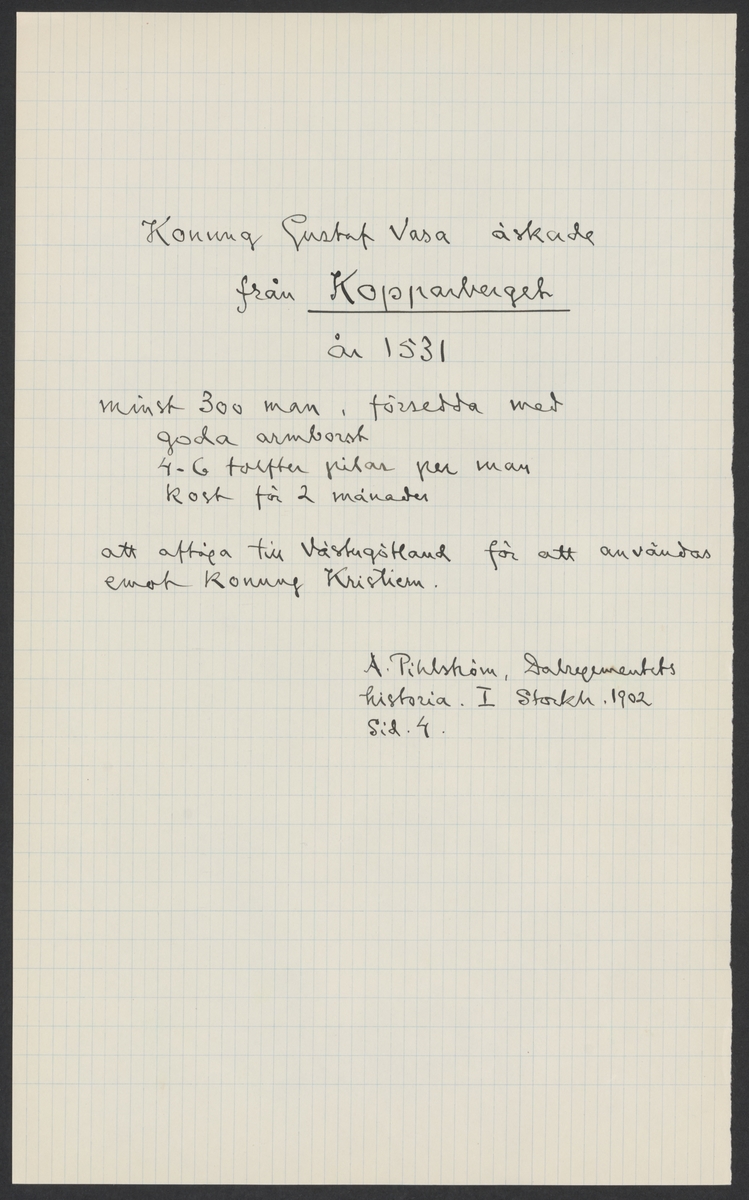 Konung Gustaf Vasa äskade
från Kopparberget
år 1531
minst 300 man, försedda med
goda armborst
4-6 tolfter pilar per man
kost för 2 månader
att aftåga till Västergötland för att användas
emot konung Kristiern.
A. Pihlström, Dalregementets
historia. I Stockh. 1902
Sid. 4.